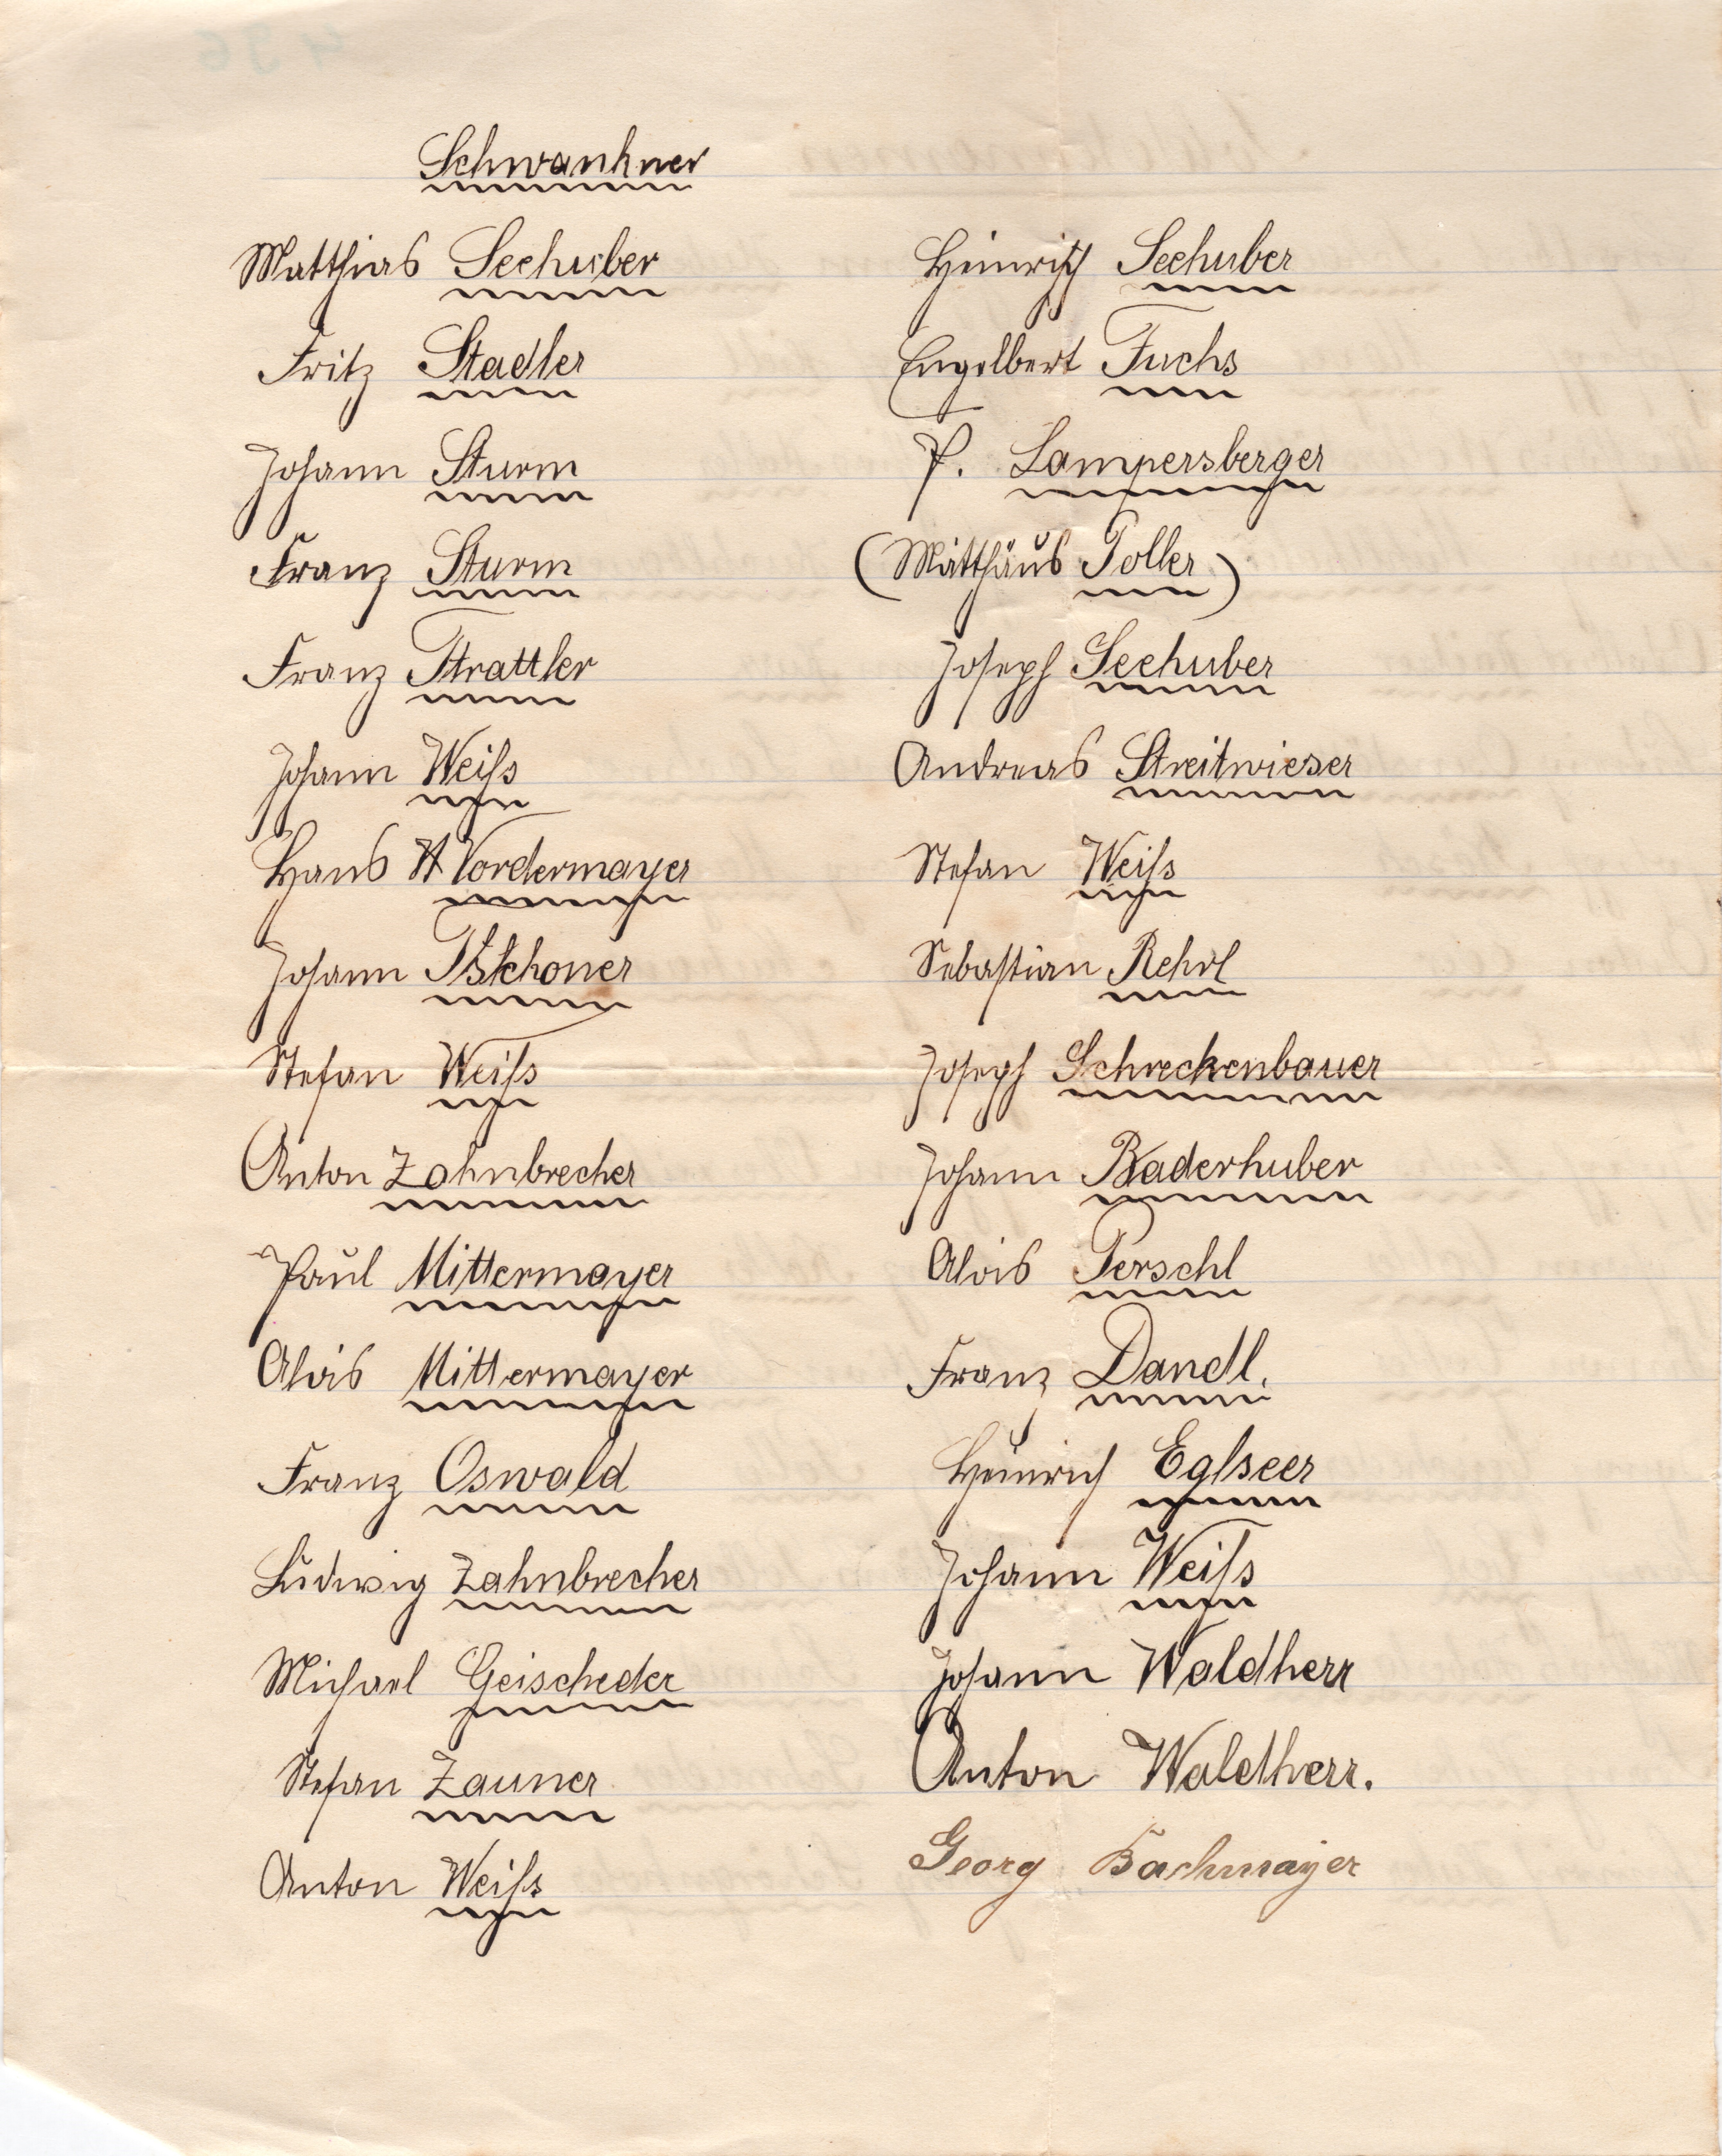 Schwankner
Matthias Seehuber
Fritz Stadler
Johann Sturm
Franz Sturm
Franz Strattler
Johann Weiſs
Hans Vordermayer
Johann
Stefan Weiſs
Anton Zahnbrecher
Paul Mittermayer
Alois Mittermayer
Franz Oswald
Ludwig Zahnbrecher
Michael Geischeder
Stefan Zauner
Anton Weiſs
Heinrich Seehuber
Engelbert Fuchs
P. Lampersberger
(Matthäus Poller)
Joseph Seehuber
Andreas Streitwieser
Stefan Weiſs
Sebastian Rehrl
Joseph Schreckenbauer
Johann Raderhuber
Alois Perschl
Franz Dandl.
Heinrich Eglseer
Johann Weiſs
Johann Waldherr
Anton Waldherr.
Georg Bachmayer